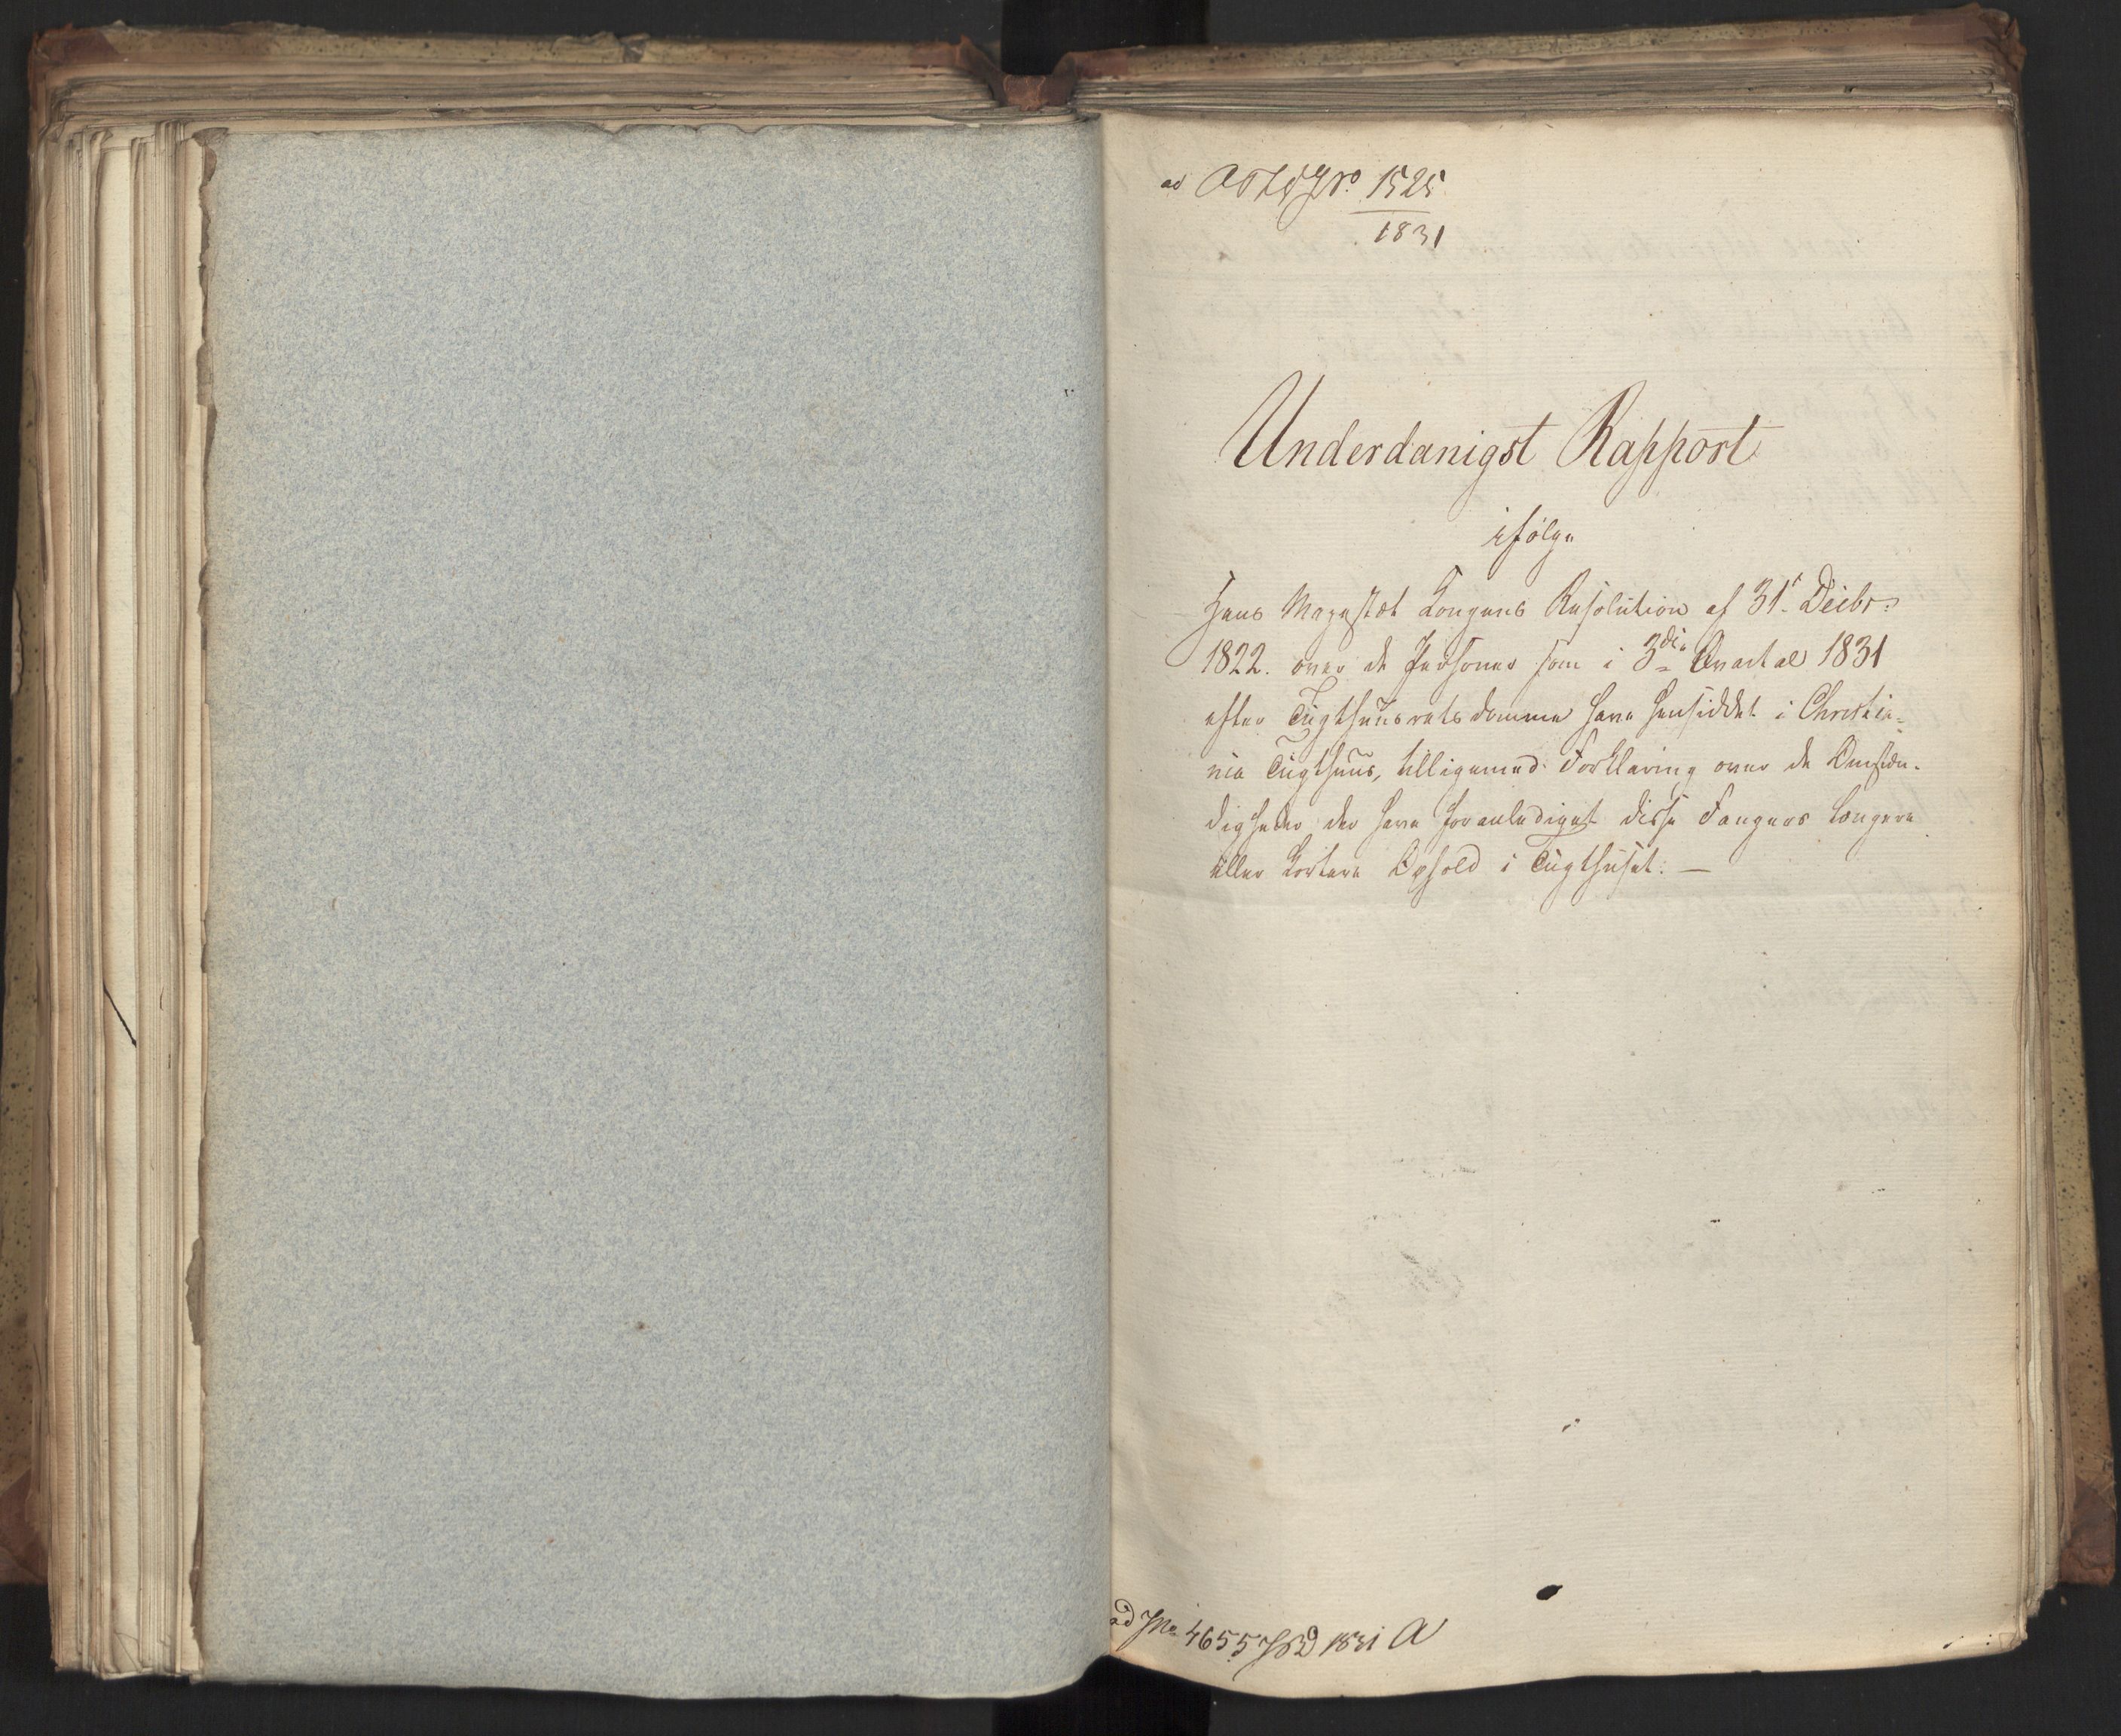 ad 1525
1831
Underdanigst Rapport
ifølge
Hans Majestæt Kongens Resolution af 31t Decbr:
1822. over de Personer som i 3die Qvartal 1831
efter Tugthuusretsdomme have hensiddet i Christia-
nia Tugthuus, tilligemed Forklaring over de Omstæn-
digheder der have foranlediget disse Fangers længere
eller kortere Ophold i Tugthuset. —
ad Jno 4655 1831 A